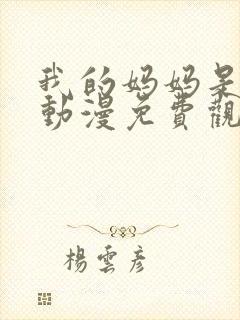 我的妈妈是
動漫免費觀
楊雲彦